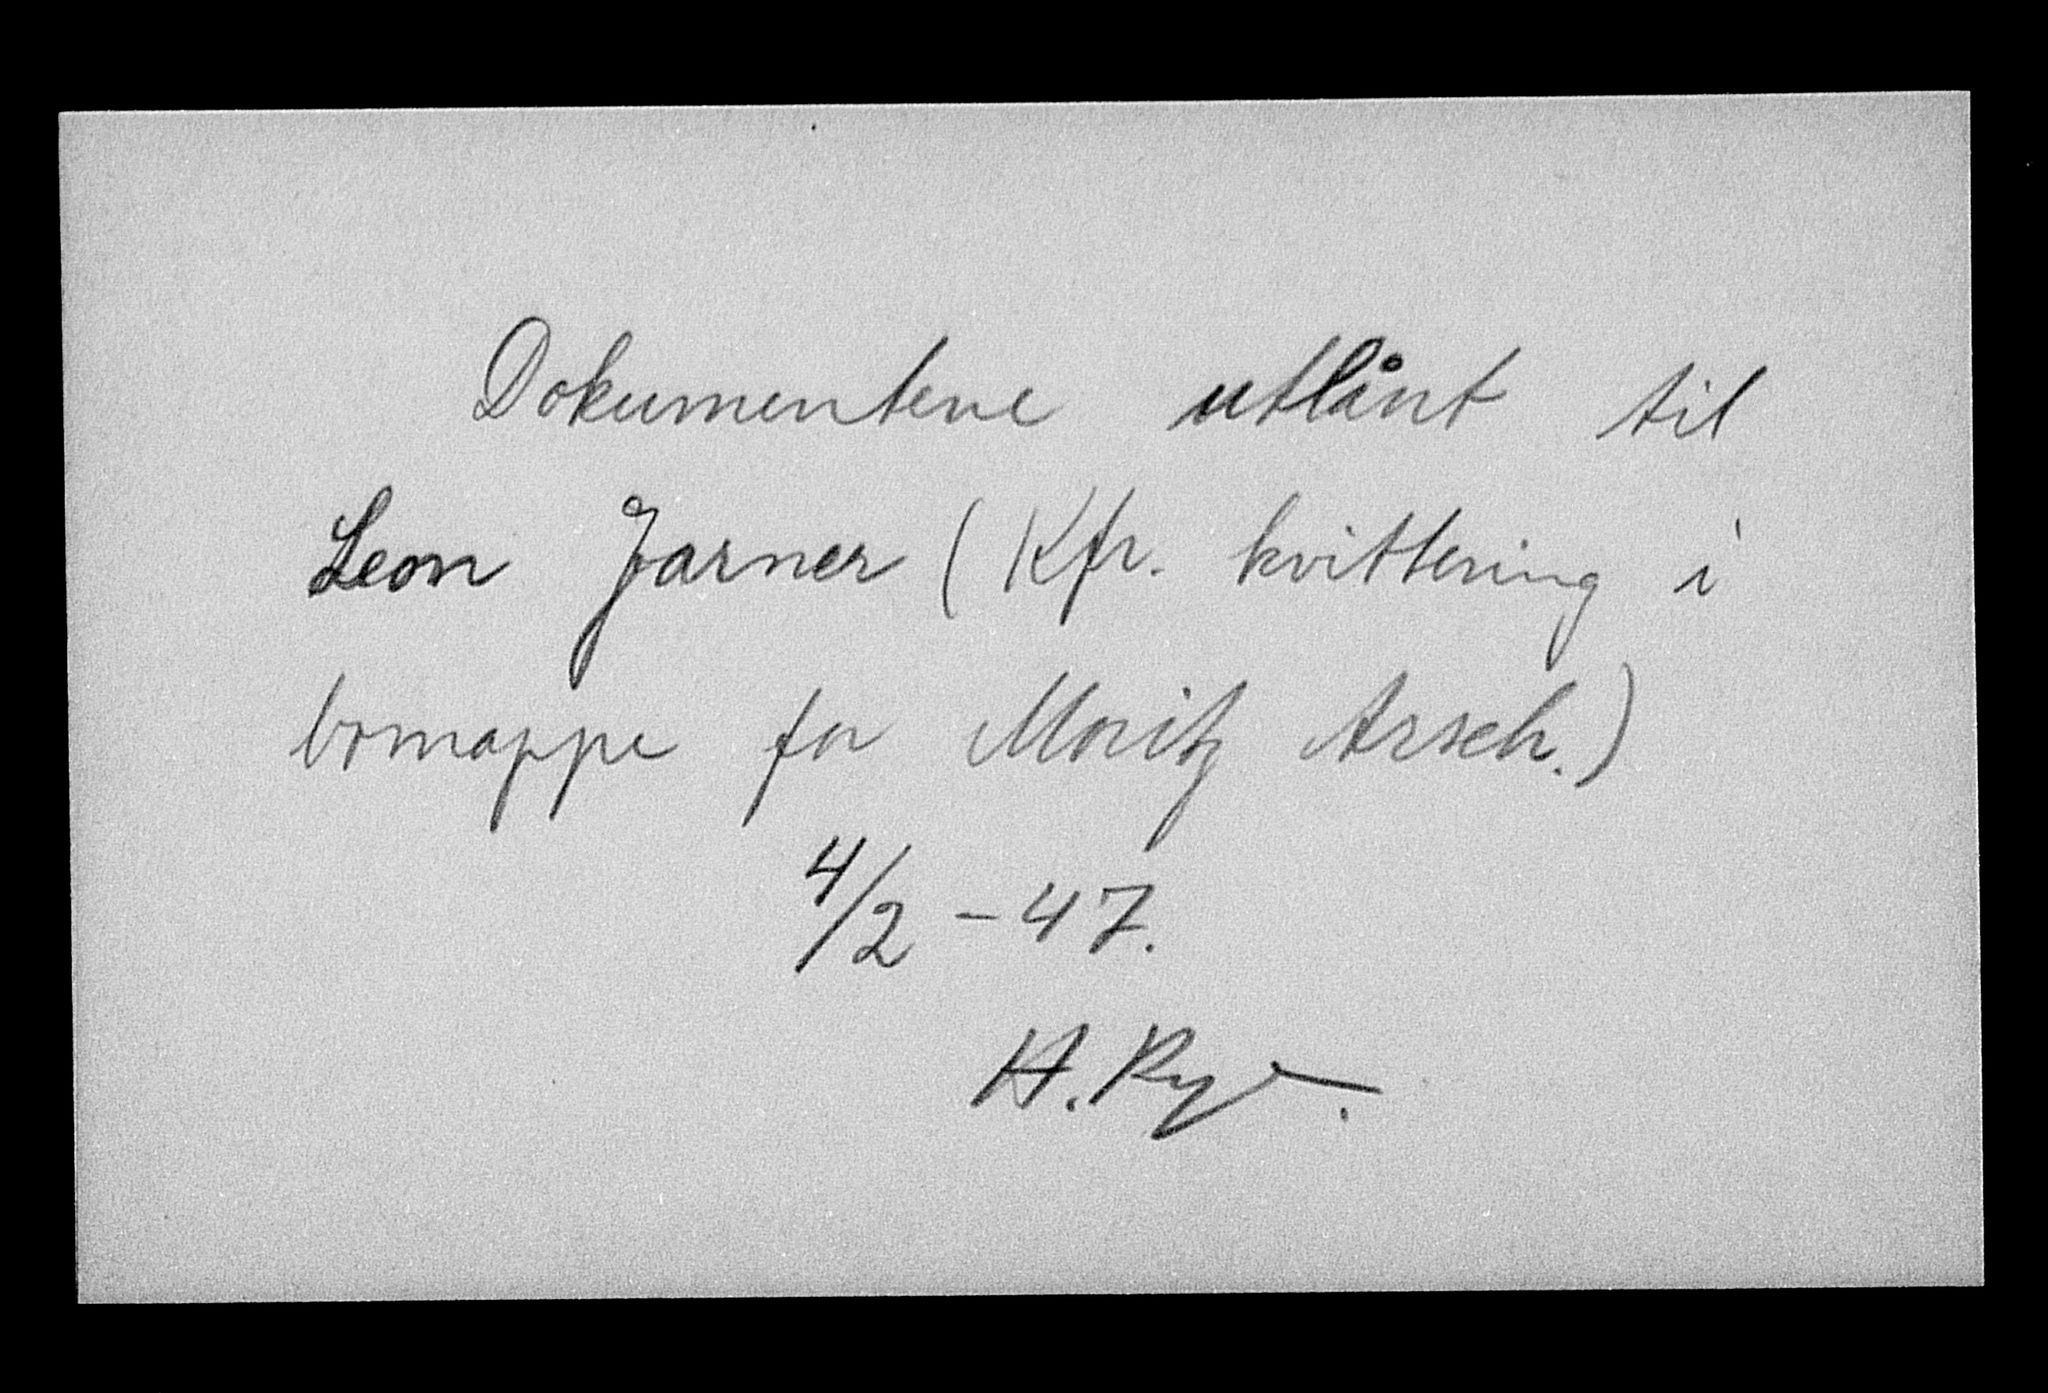 Dokumentene utlånt til
Leon Jarner (Kfr. kvittering i
bomappe for Moritz Arsch.)
4/2 - 47.
H. Ry